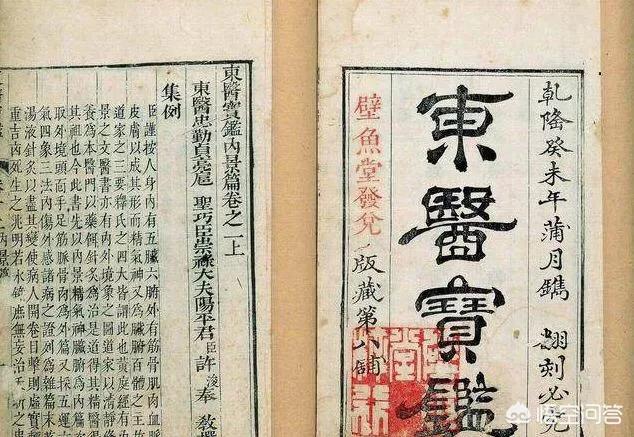 乾隆癸未年蒲月鐫 翻刻必究
東醫寶鑑
壁魚堂發兌
版藏第八鋪
東醫寶鑑內景篇卷之一上
東醫忠勤貞亮扈 聖巧臣崇祿大夫陽平君臣許浚奉 教撰
集例
臣謹按人身內有五臟六腑外有筋骨肌肉血脈
皮膚以成其形而精氣神又為臟腑百體之主故
道家之三要釋氏之四大皆謂此也黃庭經有內
景之文醫書亦有內外境象之圖道家以清靜修
養為本醫門以藥餌針灸為治是道得其精醫得
其粗也今此書先以內景精氣神臟腑為內篇次
取外境頭面手足筋脈骨肉為外篇又採五運六
氣四象三法內傷外感諸病之證列為雜篇末著
湯液針灸以盡其變使病人開卷目擊則虛實輕
重吉凶死生之兆明若水鏡庶無妄治夭折之患
悟空问答